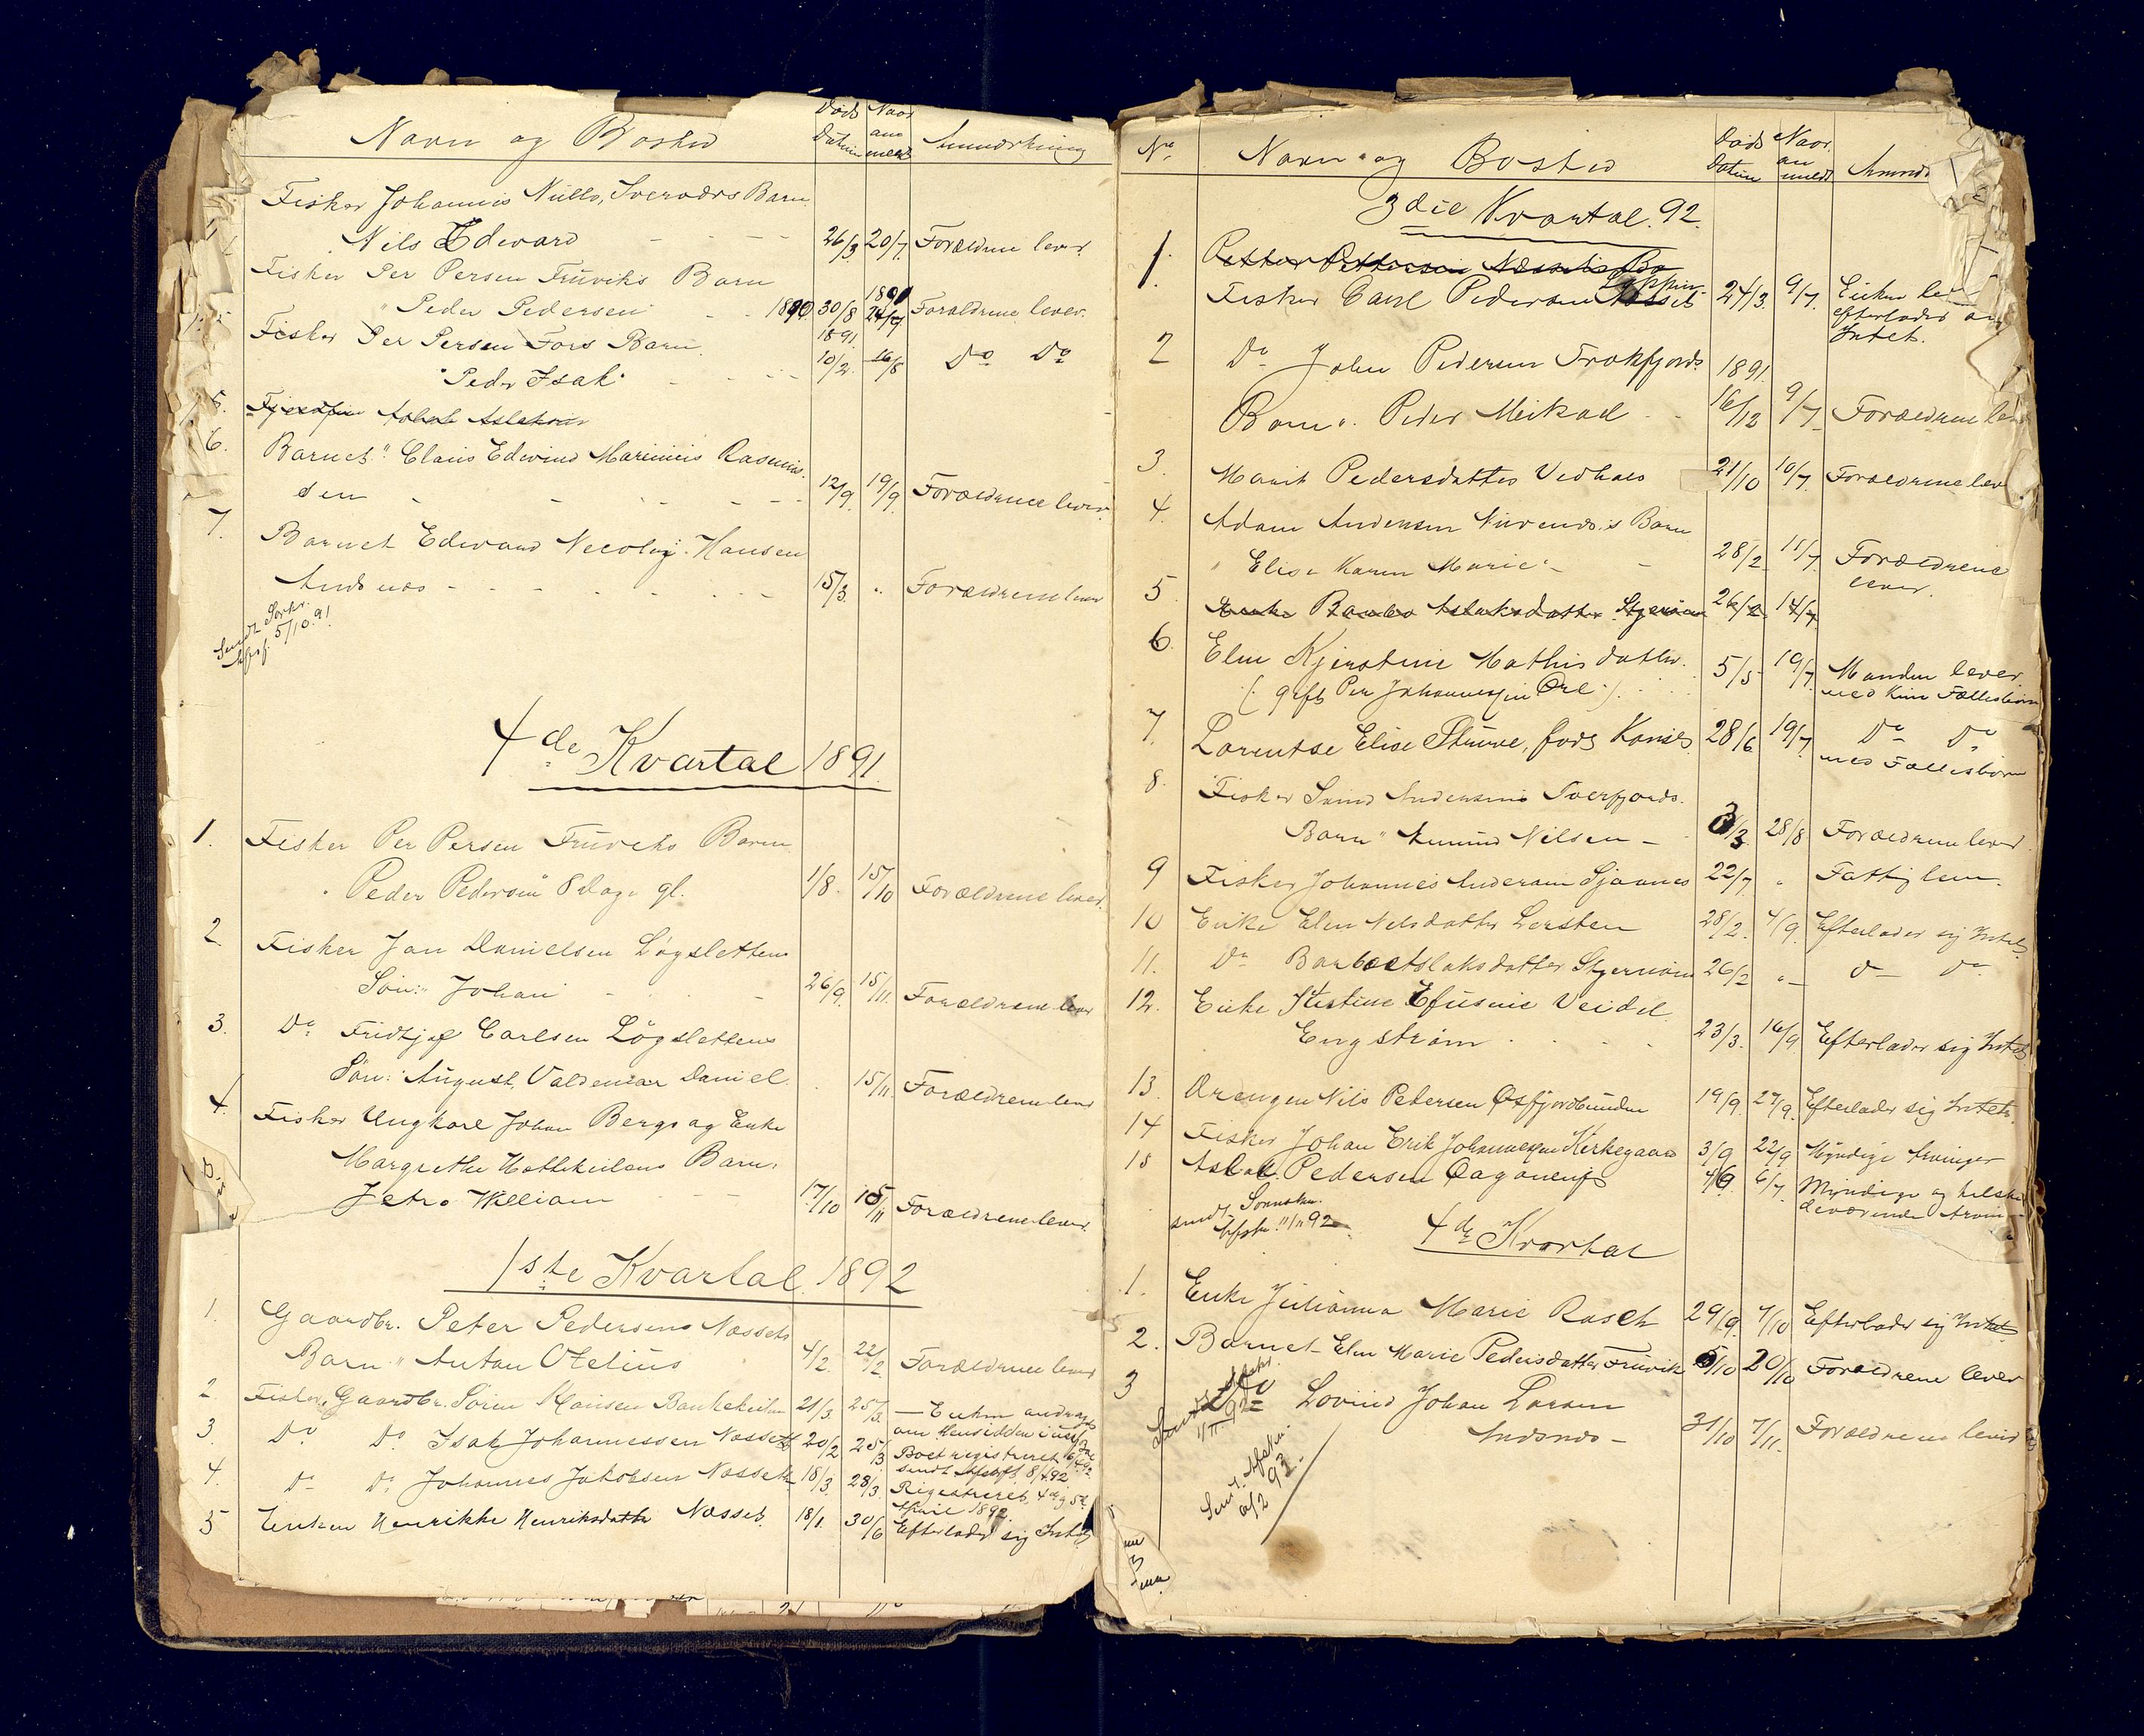 Navn og Bosted
Døds Datum
Naar anmeldt
Anmærkning
Fisker Johannes Nills, Sværværs Barn
Nils Edward 26/3 20/7 Forældrene lever
Fisker Per Persen Trüviks Barn
"Peder Pedersen 1890 30/8 1891 Forældrene lever.
Fisker Per Persen Fors Barn 1891
"Peder Isak" 10/2 16/8 Do Do
5.
6. Barnet "Claus Edwind Marinius Rasmus-
sen 12/9 19/9 Forældrene lever
7. Barnet Edward Necolaj Hansen
Andsnæs 15/3 " Forældrene lever
Sendt Sorkr.
Afsf. 5/10.91
4de Kvartal 1891
1. Fisker Per Persen Trüviks Barn
Peder Pedersen 8 Dage gl. 1/8 15/10 Forældrene lever
2. Fisker Jan Danielsen Løgslettens
Søn: Johan 26/9 15/11 Forældrene lever
3. Do Fridtjof Carlsen Løgslettens
Søn: August Valdemar Daniel 15/11 Forældrene lever
4. Fisker Ungkarl Johan Bergs og Enke
Margrethe Barn:
Jetro William 17/10 15/11 Forældrene lever
1ste Kvartal 1892
1. Gaardbr. Peter Pedersens Næssets
Barn "Anton Otelius 4/2 22/2 Forældrene lever
2. Fisker, Gaardbr. Søren Hansen 21/3 25/3 Enken andrager
om Hensidden i uskiftet Bo
3. Do Do Isak Johannessen Næsset 20/2 25/3 Boet registreret
sendt 8/4 92
4. Do Do Johannes Jakobsen Næsset 18/3 28/3 Registreret 4de og 5te
April 1892
5 Enken Henrikke Henriksdatter Næsset 18/1 30/6 Efterlader sig Intet
No Navn og Bosted
Døds Datum
Naar anmeldt
Anmærk
3die Kvartal. 92.
1. Petter Pettersen
Fisker Carl Pedersen 24/3 9/7. Enken
efterlader
Intet.
2 Do John Pedersen Frakfjords 1891
Barn ". Peder Meikael 16/12 9/7 Forældrene lev
3. Marit Pedersdatter Vedhaes 21/10 10/7 Forældrene lev
4. Adam Andersen Barn
"Elise Karen Marie" 28/2 11/7 Forældrene
lever.
5 Enke Barbo Aslaksdatter Stjernøen 26/2 14/7
6 Elen Kjerstine Mathisdatter. 5/5 19/7 Manden lever
(: gift Per Johannessen Øre :) med Fællesbørn
7. Lorentse Elise Struve, født Hansen 28/6 19/7 Do Do
med Fællesbørn
8. Fisker Svend Andersens Tverfjords.
Barn "Amund Nilsen 3/3 28/8 Forældrene lever
9 Fisker Johannes Andersen 22/7 " Fattiglem.
10 Enke Elen Nilsdatter Lersten 28/2 4/9 Efterlader sig Intet
11. Do Barbo Aslaksdatter Stjernøen 26/2 " Do Do
12. Enke Kristine Efusine Veidel
Engstrøm 23/3 16/9 Efterlader sig Intet
13. Drengen Nils Pedersen Øxfjordbunden 19/9 27/9 Efterlader sig Intet
14 Fisker Johan Erik Johannessen Kirkegaard 3/9 22/9 Myndige Arvinger
15 Aslak Pedersen 4/6 6/7 Myndige og
værende Arvin
sendt Sorensk.
Afsk. 11/11 92
4de Kvartal
1. Enke Julianna Marie Rasch 29/9 7/10 Efterlader sig Intet
2. Barnet Elen Marie Pedersdatter Trüvik 5/10 20/10 Forældrene lever
3 Do Lovind Johan Larsen
Andsnæs 31/10 7/11. Forældrene lever
Sendt Afskr.
1/11 92
Sendt Afskr.
6/2 93.